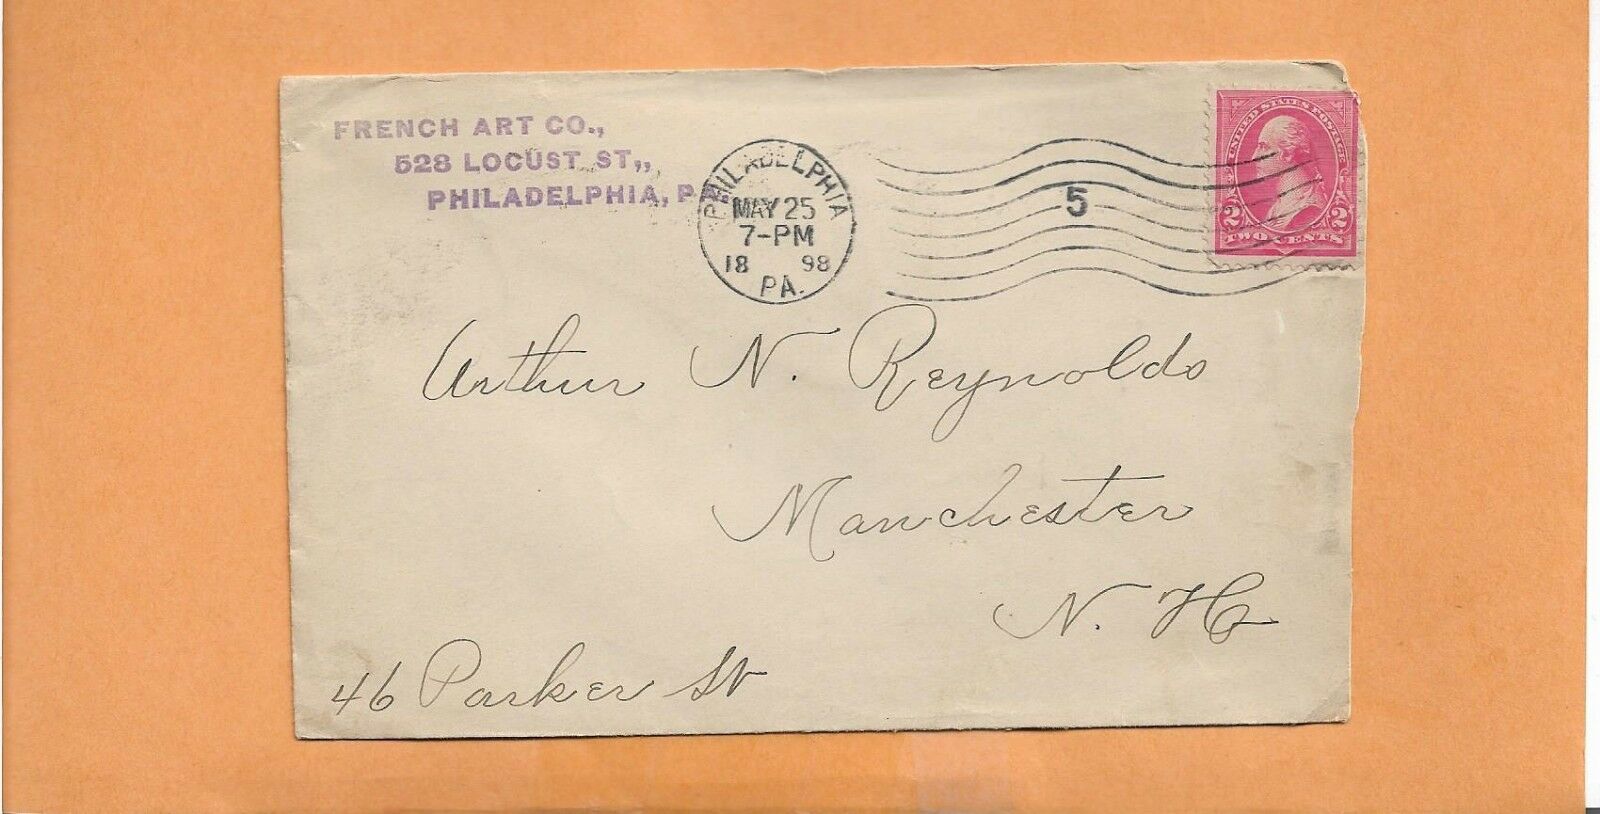 FRENCH ART CO.,
528 LOCUST ST,,
PHILADELPHIA, PA.
PHILADELPHIA
MAY 25
7-PM
18 98
PA.
5
UNITED STATES POSTAGE
2 2
TWO CENTS
Arthur N. Reynolds
Manchester
N. H
46 Parker St